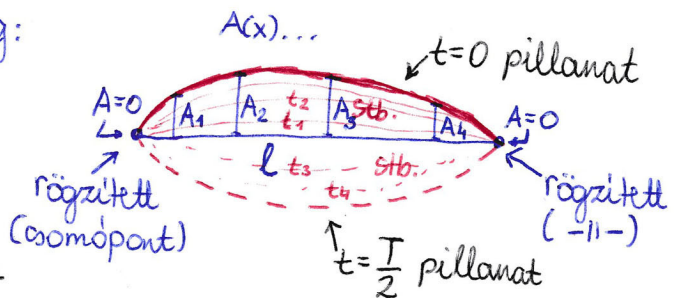 g:
A(x)...
t=0 pillanat
A=0
A₁
A₂
t₂
t₁
A₃
stb.
A₄
A=0
l
t₃
stb.
t₄
rögzített
(csomópont)
rögzített
( -||- )
t=T/2 pillanat